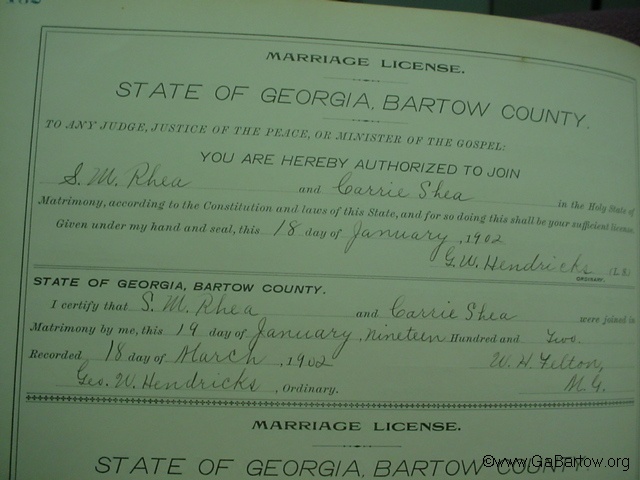 MARRIAGE LICENSE.
STATE OF GEORGIA, BARTOW COUNTY.
TO ANY JUDGE, JUSTICE OF THE PEACE, OR MINISTER OF THE GOSPEL:
YOU ARE HEREBY AUTHORIZED TO JOIN
S. M. Rhea and Carrie Shea in the Holy State of
Matrimony, according to the Constitution and laws of this State, and for so doing this shall be your sufficient license.
Given under my hand and seal, this 18 day of January, 1902
G. W. Hendricks (L.S.)
ORDINARY.
STATE OF GEORGIA, BARTOW COUNTY.
I certify that S. M. Rhea and Carrie Shea were joined in
Matrimony by me, this 19 day of January, nineteen Hundred and Two.
Recorded 18 day of March, 1902 W. H. Felton,
Geo. W. Hendricks, Ordinary. M. G.
MARRIAGE LICENSE.
STATE OF GEORGIA, BARTOW COUNTY.
©www.GaBartow.org